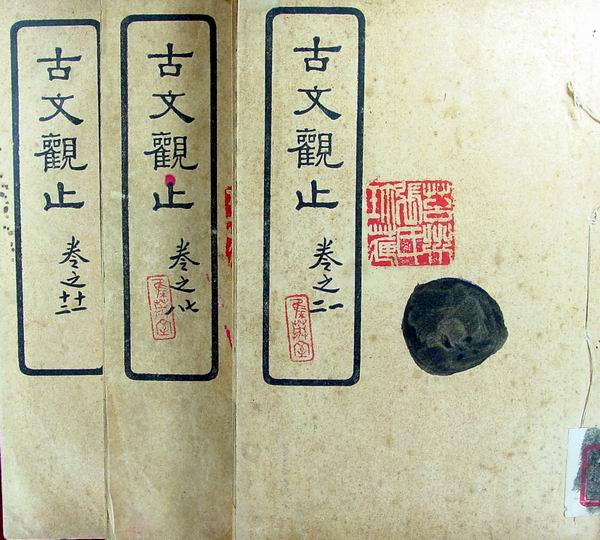 古文觀止
卷之一二
古文觀止
卷之七八
古文觀止
卷之十一十二